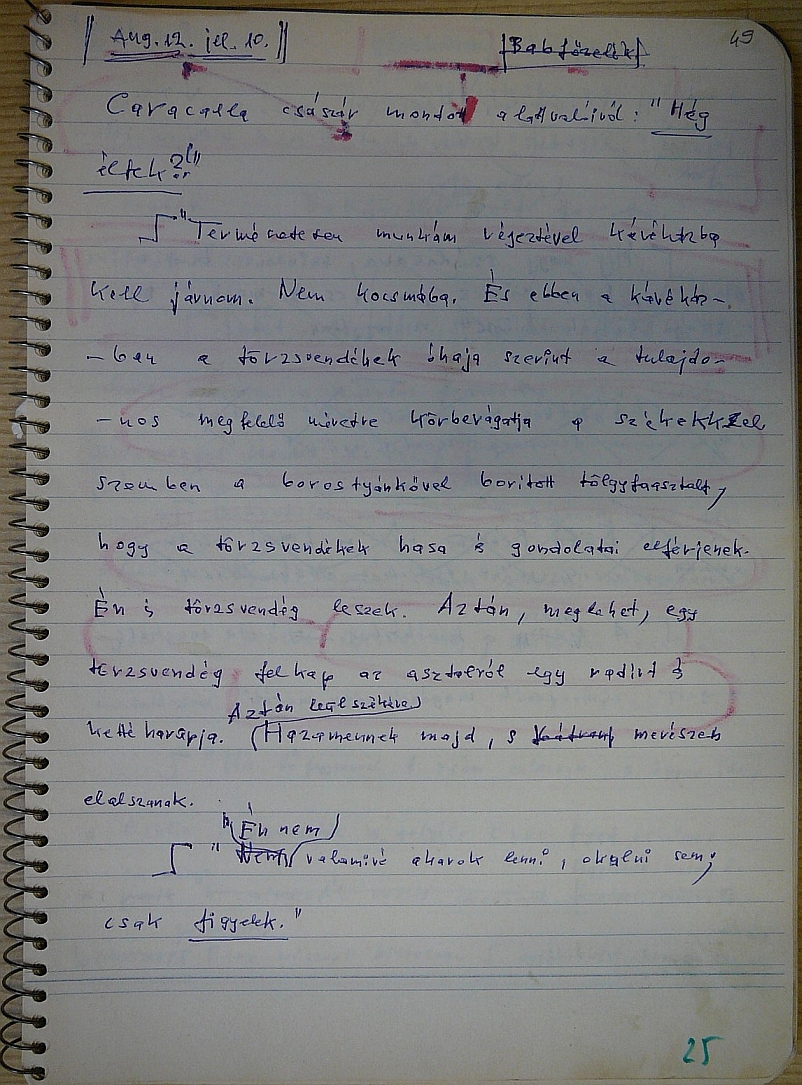 Aug. 12. jel. 10. Babfőzelék 49
Caracalla császár mondot alattvalóiról: "Még
éltek?!"
"Természetesen munkám végeztével kávéházba
kell járnom. Nem kocsmába. És ebben a kávéház-
-ban a törzsvendéhek óhaja szerint a tulajdo-
-nos megfelelő méretre körbevágatja a székekkel
szemben a borostyánkővel borított tölgyfaasztalt,
hogy a törzsvendéhek hasa és gondolatai elférjenek.
Én is törzsvendég leszek. Aztán, meglehet, egy
törzsvendég felkap az asztalról egy radírt és
Aztán
ketté harapja. (Hazamennek majd, s merészen
elalszanak.
"Én nem
" Nem valamivé akarok lenni, okulni sem;
csak figyelek."
25